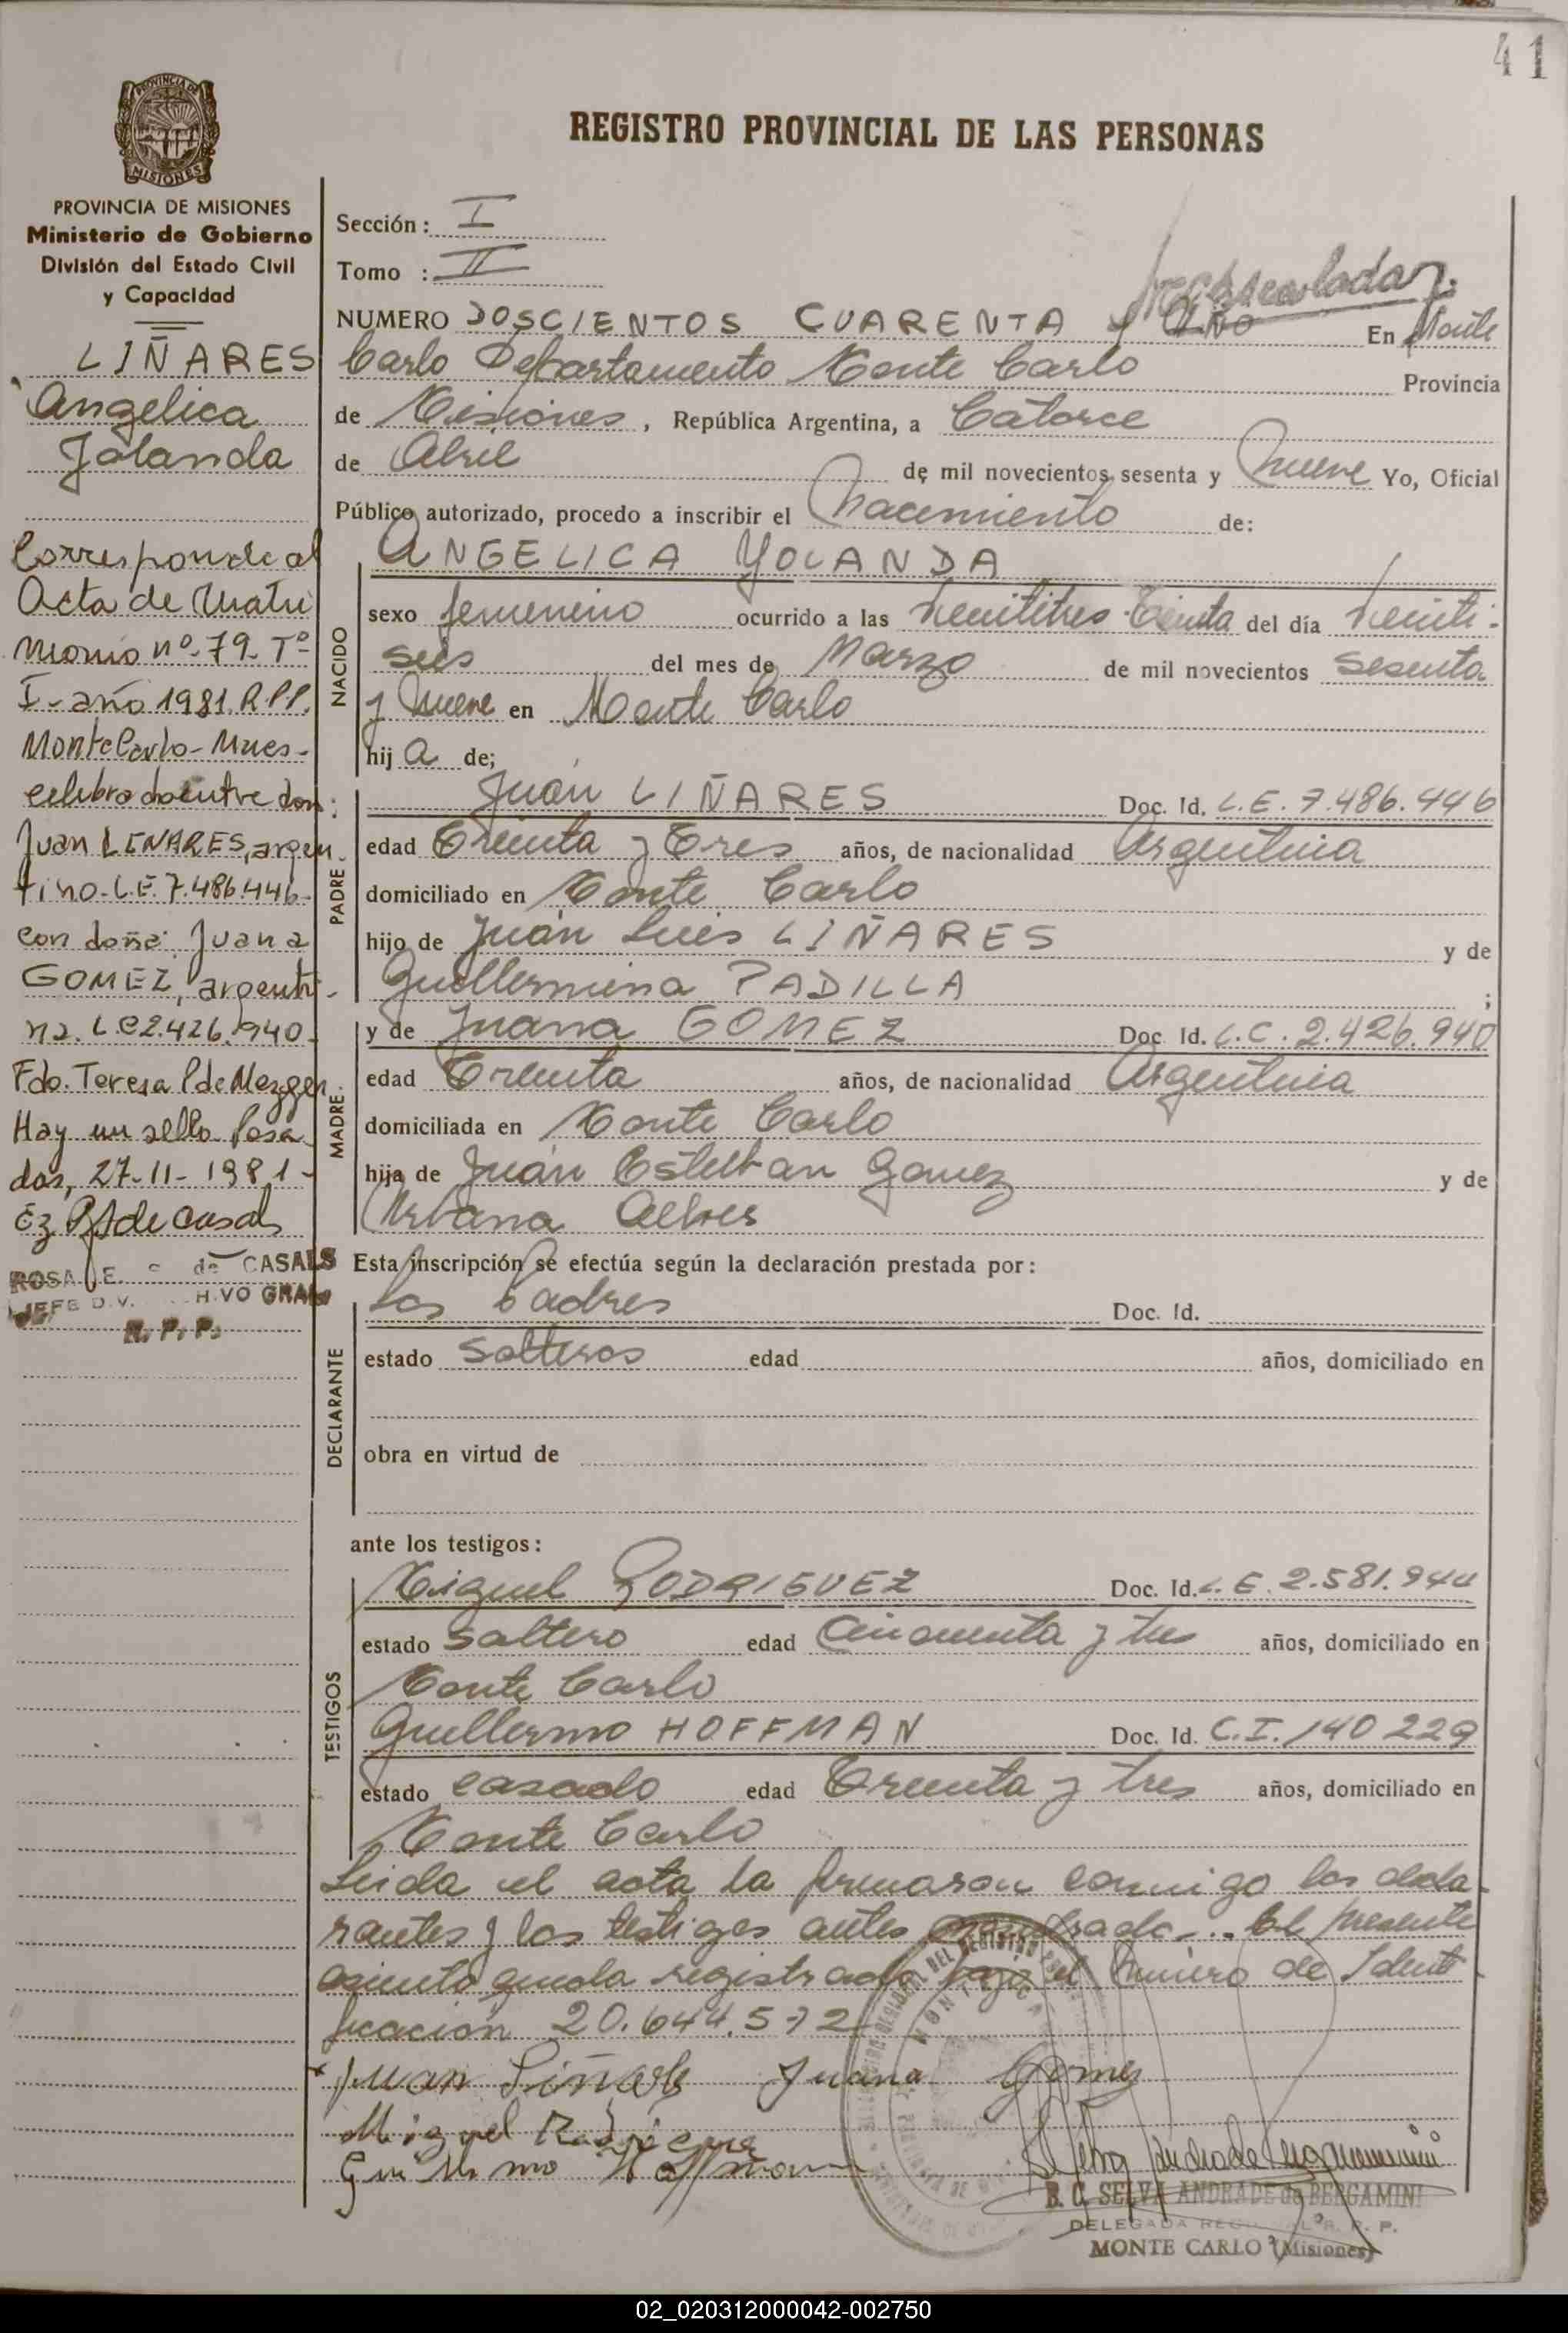 41
PROVINCIA DE
MISIONES
REGISTRO PROVINCIAL DE LAS PERSONAS
PROVINCIA DE MISIONES
Ministerio de Gobierno
División del Estado Civil
y Capacidad
LIÑARES
Angelica
Jolanda
Corresponde al
Acta de Matri
monio nº 79 Tº
I- año 1981 R.P.P.
Monte Carlo- Mnes-
celebrado entre don:
Juan LINARES, argen-
tino-L.E. 7.486.446-
con doña: Juana
GOMEZ, argenti-
na. L.C 2.426.940-
Fdo. Teresa P de Mezgger.
Hay un sello Posa
das, 27-11-1981-
de Casals
ROSA E. de CASALS
JEFE DIV.
R. P. P.
Sección: I
Tomo : II
NUMERO DOSCIENTOS CUARENTA y UNO En Monte
Carlo Departamento Monte Carlo Provincia
de Misiones, República Argentina, a Catorce
de Abril de mil novecientos sesenta y nueve Yo, Oficial
Público autorizado, procedo a inscribir el Nacimiento de:
NACIDO
ANGELICA YOLANDA
sexo femenino ocurrido a las veintitres treinta del día veinti-
seis del mes de Marzo de mil novecientos sesenta
y Nueve en Monte Carlo
hij a de;
PADRE
Juan LIÑARES Doc. Id. L.E. 7.486.446
edad Treinta y Tres años, de nacionalidad Argentina
domiciliado en Monte Carlo
hijo de Juan Luis LIÑARES y de
Guillermina PADILLA ;
MADRE
y de Juana GOMEZ Doc. Id. L.C. 2.426.940
edad Treinta años, de nacionalidad Argentina
domiciliada en Monte Carlo
hija de Juan Esteban Gomez y de
Urbana Alves
Esta inscripción se efectúa según la declaración prestada por:
DECLARANTE
Los Padres Doc. Id.
estado Solteros edad años, domiciliado en
obra en virtud de
ante los testigos:
TESTIGOS
Miguel RODRIGUEZ Doc. Id. L.E. 2.581.944
estado Soltero edad Cincuenta y tres años, domiciliado en
Monte Carlo
Guillermo HOFFMAN Doc. Id. C.I. 140229
estado casado edad Treinta y tres años, domiciliado en
Monte Carlo
Leida el acta la firmaron conmigo los decla-
rantes y los testigos antes nombrados.. El presente
asiento queda registrado bajo el Numero de Identi-
ficación 20.644.572
Juan Liñares Juana Gomez
Miguel Rodriguez
Guillermo Hoffman
B. C. SELVA ANDRADE de BERGAMINI
DELEGADA R. P. P.
MONTE CARLO (Misiones)
02_020312000042-002750